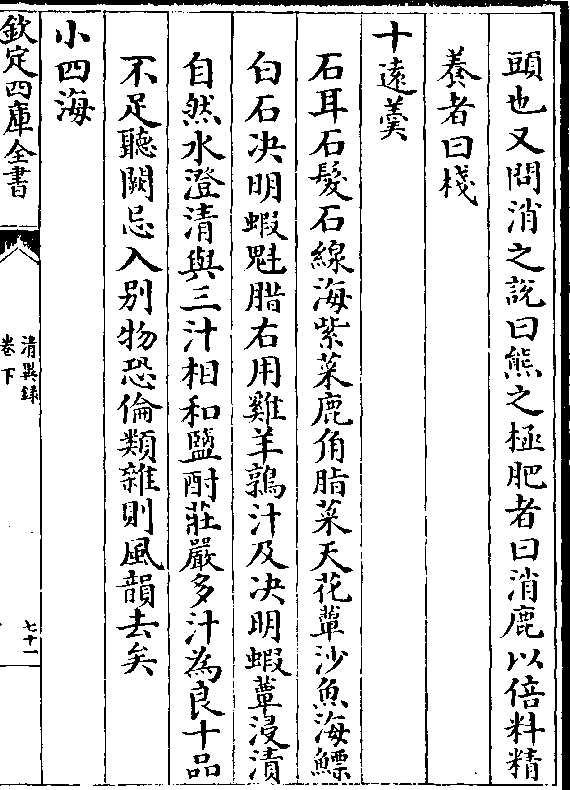 頭也又問消之説曰熊之極肥者曰消鹿以倍料精
養者曰棧
十遠羮
石耳石髮石線海紫菜鹿角脂菜天花蕈沙魚海鰾
白石决明蝦魁腊右用雞羊鶉汁及决明蝦蕈浸漬
自然水澄清與三汁相和鹽酎莊嚴多汁為良十品
不足聽闕忌入别物恐倫類雜則風韻去矣
小四海
欽定四庫全書
清異録
卷下
七十一